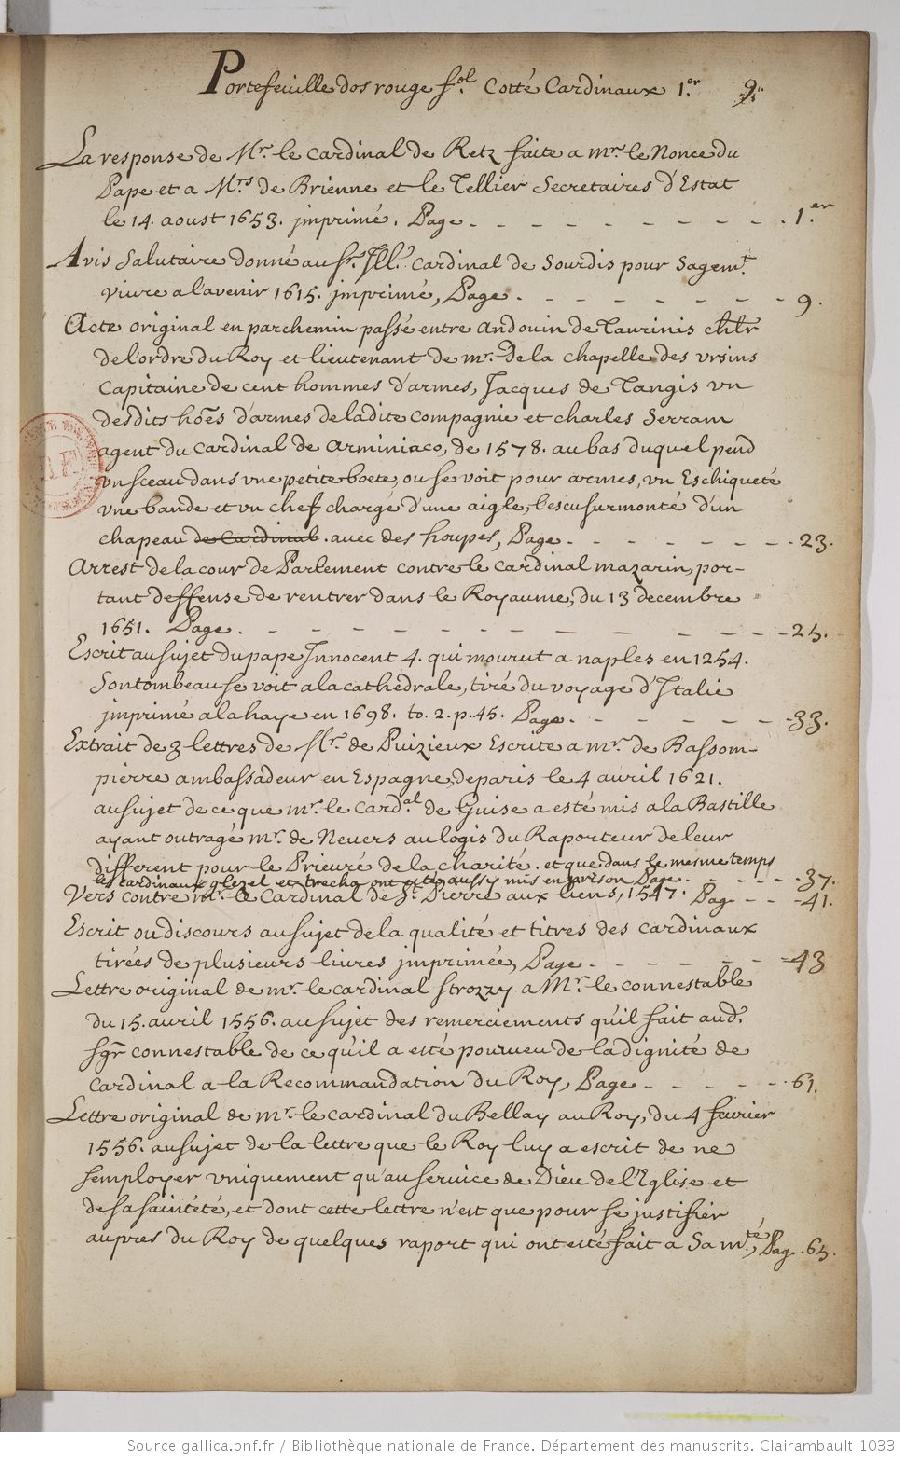 Portefeuille dos rouge fol. Cotté Cardinaux 1.er
La response de Mr. le cardinal de Retz faite a mr. le Nonce du
Pape et a Mrs de Brienne et le Tellier Secretaires d'Estat
le 14 aoust 1653. jmprimé. Page - - - - 1.er
Avis Salutaire donné au Sr. Jll. Cardinal de Sourdis pour Sagemt.
vivre a l'avenir 1615. jmprimé, Page - - - - 9.
Acte original en parchemin passé entre Andouin de Taurinis chlr
de l'ordre du Roy et lieutenant de mr. de la chapelle des ursins
capitaine de cent hommes d'armes, Jacques de Tangis vn
desdits hoes d'armes de ladite compagnie et charles Serram
agent du Cardinal de Arminiaco, de 1578. au bas duquel pend
vn sceau dans vne petite boete, ou se voit pour armes, vn Eschiqueté
vne bande et vn chef chargé d'une aigle, l'escu surmonté d'un
chapeau de Cardinal. avec des houpes, Page - - - - 23.
Arrest de la cour de Parlement contre le Cardinal mazarin, por-
tant deffense de rentrer dans le Royaume, du 13 decembre
1651. Page - - - - 25.
Escrit au sujet du pape Jnnocent 4. qui mourut a naples en 1254.
Son tombeau se voit a la cathedrale, tiré du voyage d'Italie
jmprimé a la haye en 1698. to. 2. p. 45. Page - - - - 33.
Extrait de 3 lettres de Mr. de Puizieux Escrite a mr. de Bassom-
pierre ambassadeur en Espagne, de paris le 4 avril 1621.
au sujet de ce que mr. le Cardal. de Guise a esté mis a la Bastille
ayant outragé mr. de Nevers au logis du Raporteur de leur
different pour le Prieuré de la charité. et que dans le mesme temps
les cardinaux glezel et ont esté aussy mis en prison Page - - - - 37.
Vers contre mr. le Cardinal de St. Pierre aux liens, 1547. Pag - - - 41.
Escrit ou discours au sujet de la qualité et titres des cardinaux
tirées de plusieurs livres jmprimée, Page - - - - 43
Lettre original de mr. le cardinal Strozzy a Mr. le connestable
du 15. avril 1556. au sujet des remerciements qu'il fait aud.
sgr connestable de ce qu'il a esté pourveu de la dignité de
Cardinal a la Recommandation du Roy, Page - - - - 61.
Lettre original de mr. le cardinal du Bellay au Roy, du 4 fevrier
1556. au sujet de la lettre que le Roy luy a escrit de ne
s'employer vniquement qu'au service de Dieu de l'Eglise et
de sa sainteté, et dont cette lettre n'est que pour se justifier
aupres du Roy de quelques raport qui ont esté fait a Sa mté, Pag. 65.
Source gallica.bnf.fr / Bibliothèque nationale de France. Département des manuscrits. Clairambault 1033